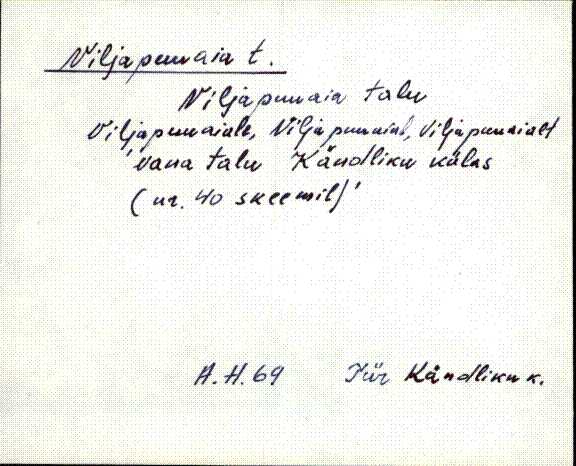 Viljapuuaia t.
Viljapuuaia talu
Viljapuuaiale, Viljapuuaial, Viljapuuaialt
'vana talu Kändliku külas
(nr. 40 skeemil)'
A.H.69 Tür Kändliku k.